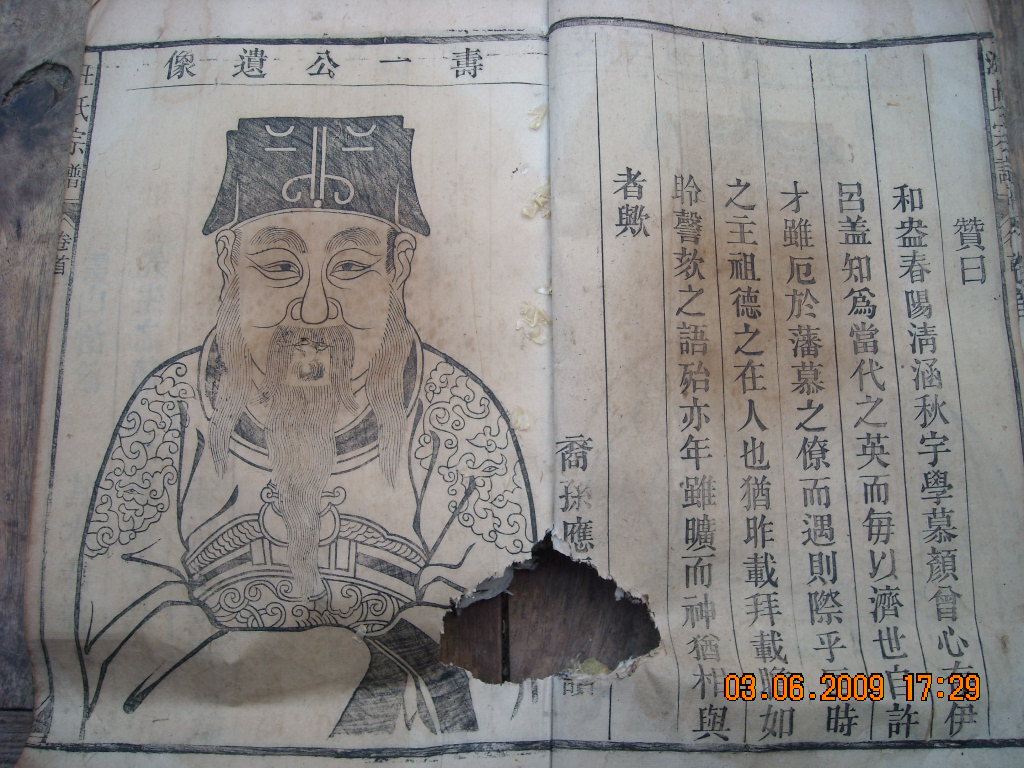 贊曰
和盎春陽清涵秋宇學慕顏曾心伊
呂盖知爲當代之英而每以濟世自許
才雖厄於藩慕之僚而遇則際乎時
之主祖德之在人也猶昨載拜載如
聆謦欬之語殆亦年雖曠而神猶相與
者歟
裔孫應
壽一公遺像
氏宗譜
卷首
03.06.2009 17:29